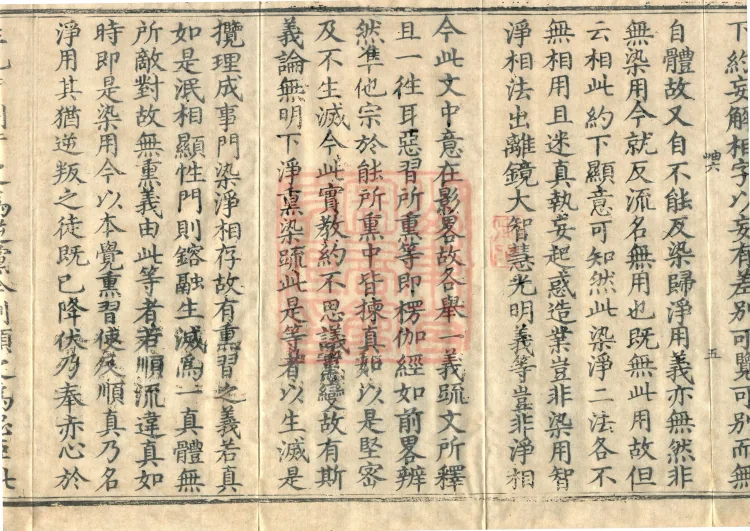 下約妄解相字以妄有差別可覽可別而無
五
自體故又自不能反染歸淨用義亦無然非
無染用今就反流名無用也既無此用故但
云相此約下顯意可知然此染淨二法各不
無相用且迷真執妄起惑造業豈非染用智
淨相法出離鏡大智慧光明義等豈非淨相
今此文中意在影畧故各舉一義疏文所釋
且一徃耳惡習所熏等即楞伽經如前畧辨
然準他宗於能所熏中皆揀真如以是堅密
及不生滅今此實教約不思議熏變故有斯
義論無明下淨熏染疏此是等者以生滅是
攬理成事門染淨相存故有熏習之義若真
如是泯相顯性門則鎔融生滅爲一真體無
所敵對故無熏義由此等者若順流違真如
時即是染用今以本覺熏習使反順真乃名
淨用其猶逆叛之徒既已降伏乃奉亦心於